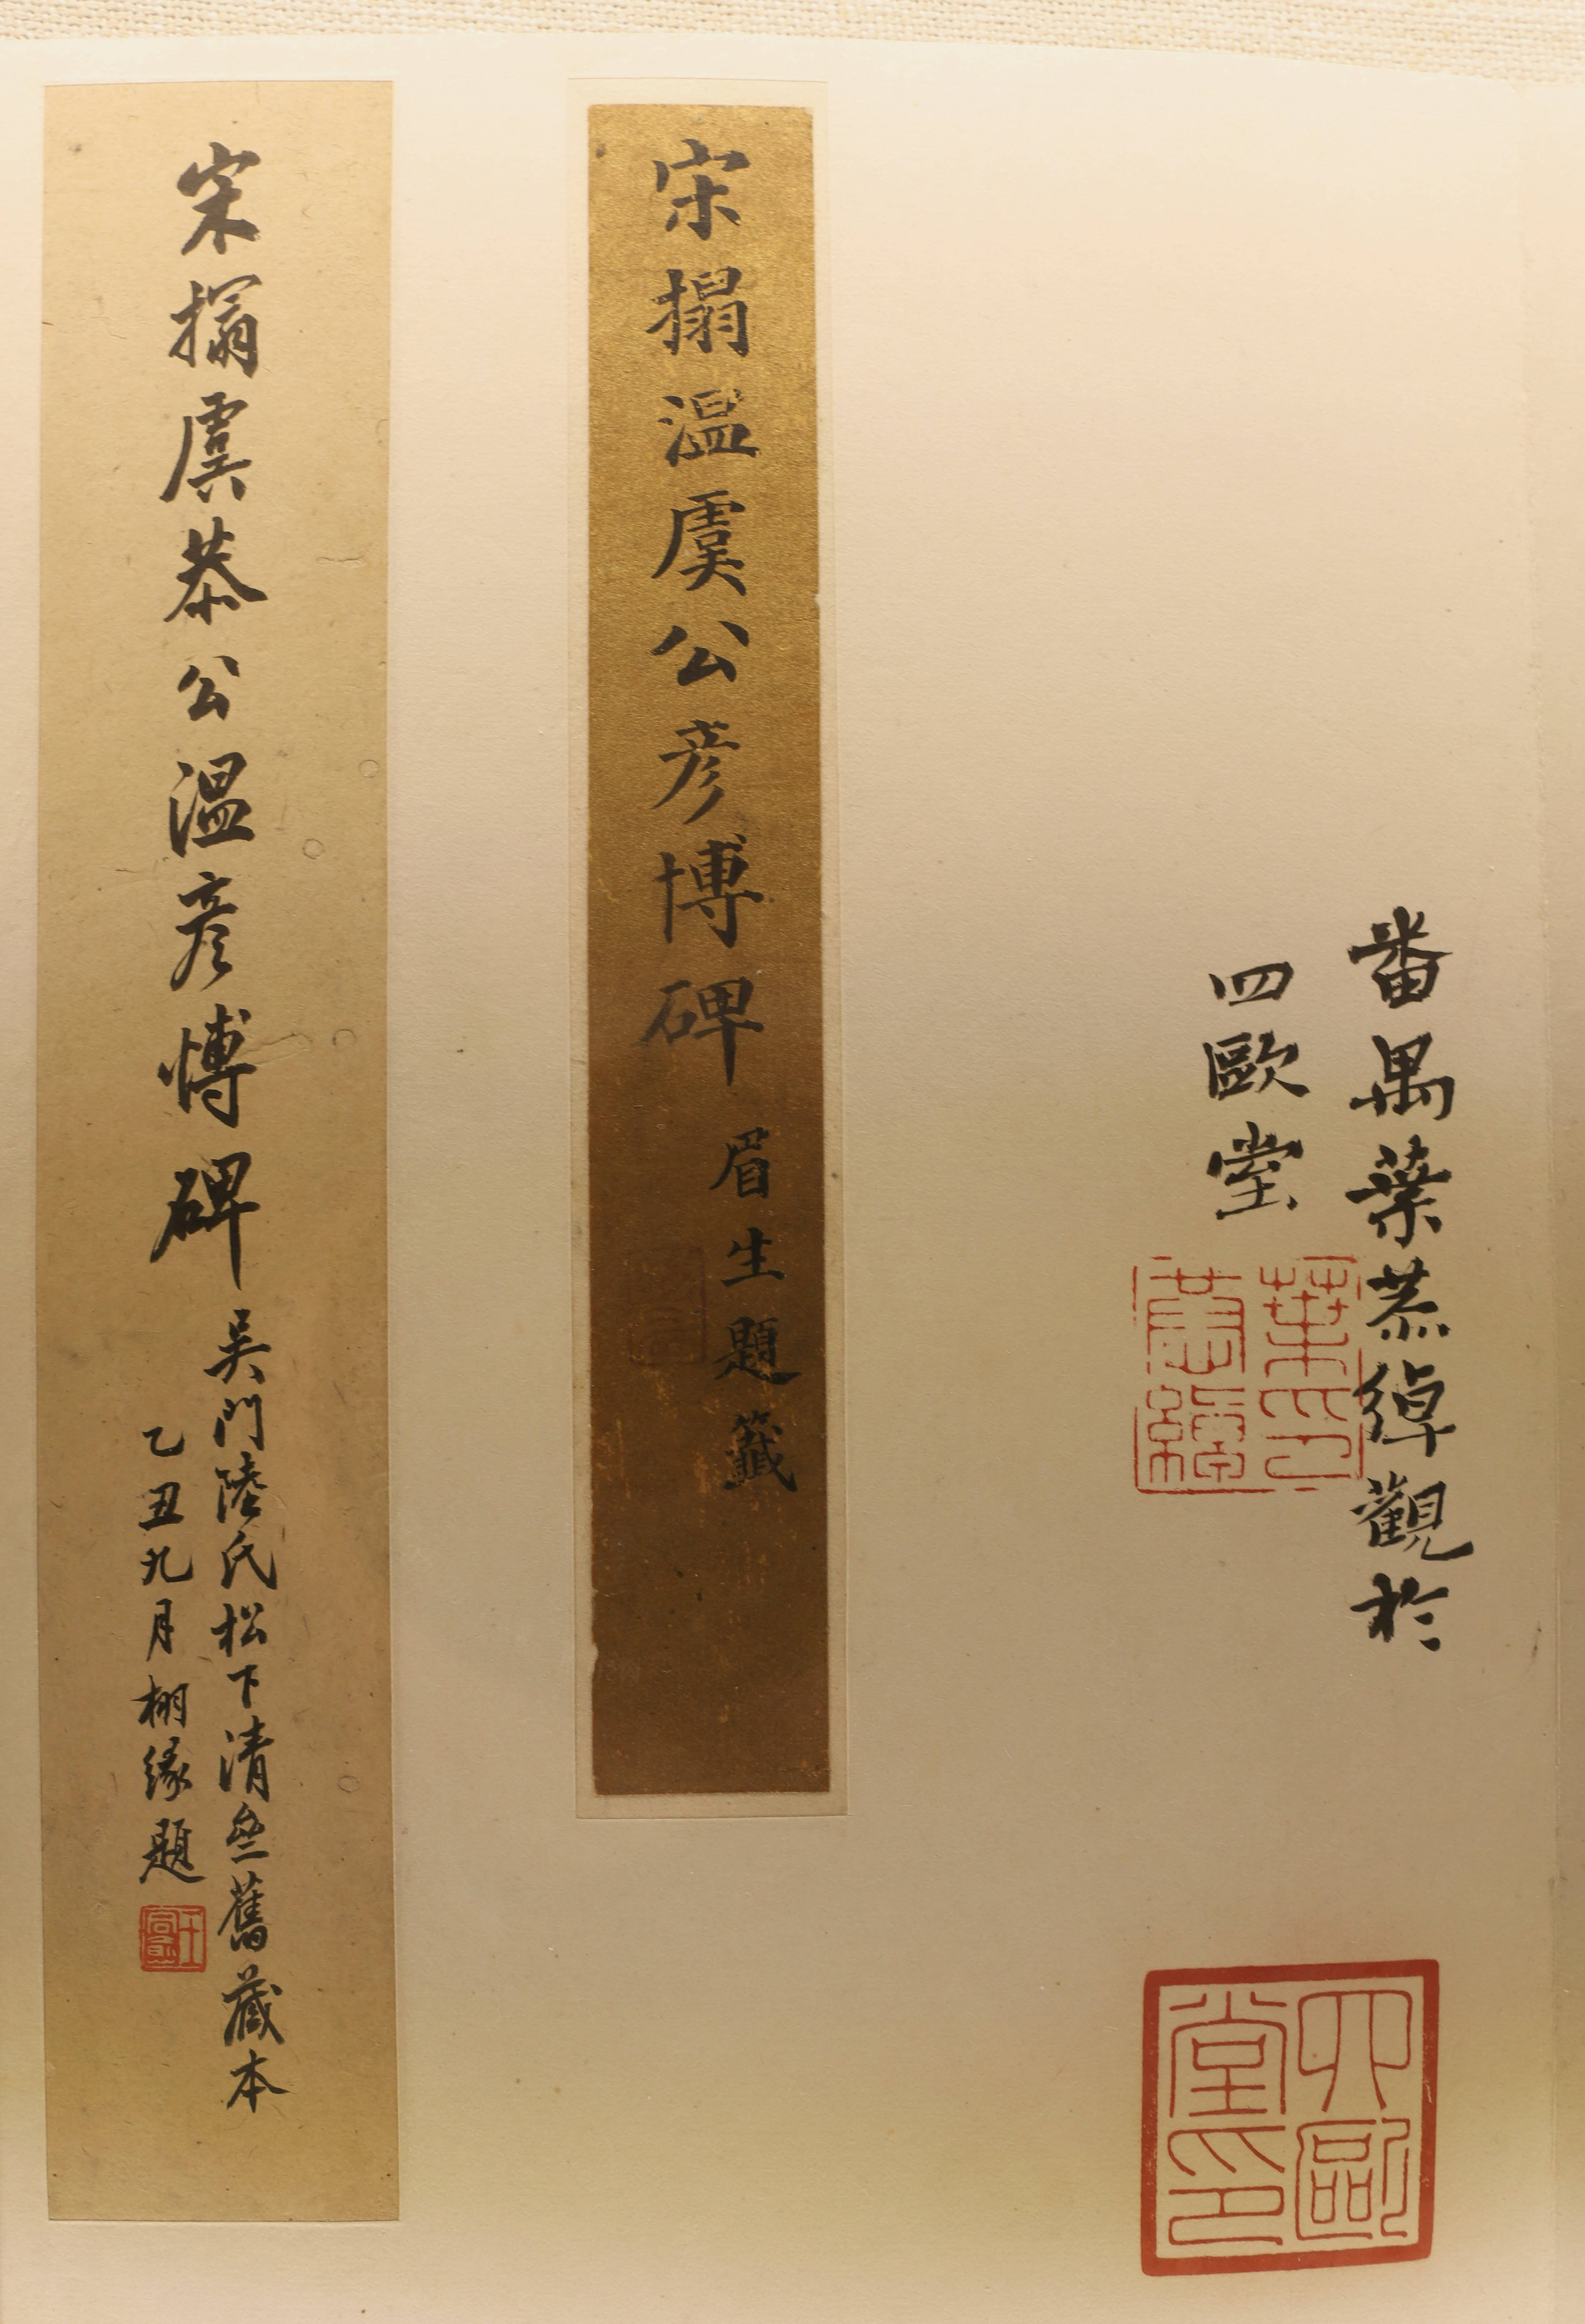 番禺葉恭綽觀於
四歐堂
葉恭綽印
四歐堂印
宋搨溫虞公彥博碑
眉生題籤
宋搨虞恭公溫彥博碑
吳門陸氏松下清齋舊藏本
乙丑九月栩緣題